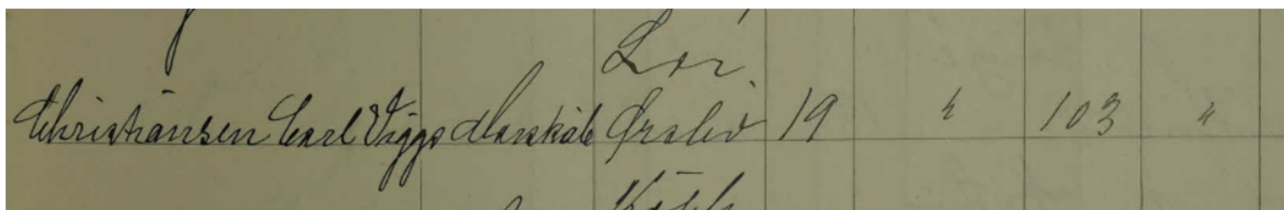 Christiansen Carl Viggo Marskal Ørslev 19 " 103 "